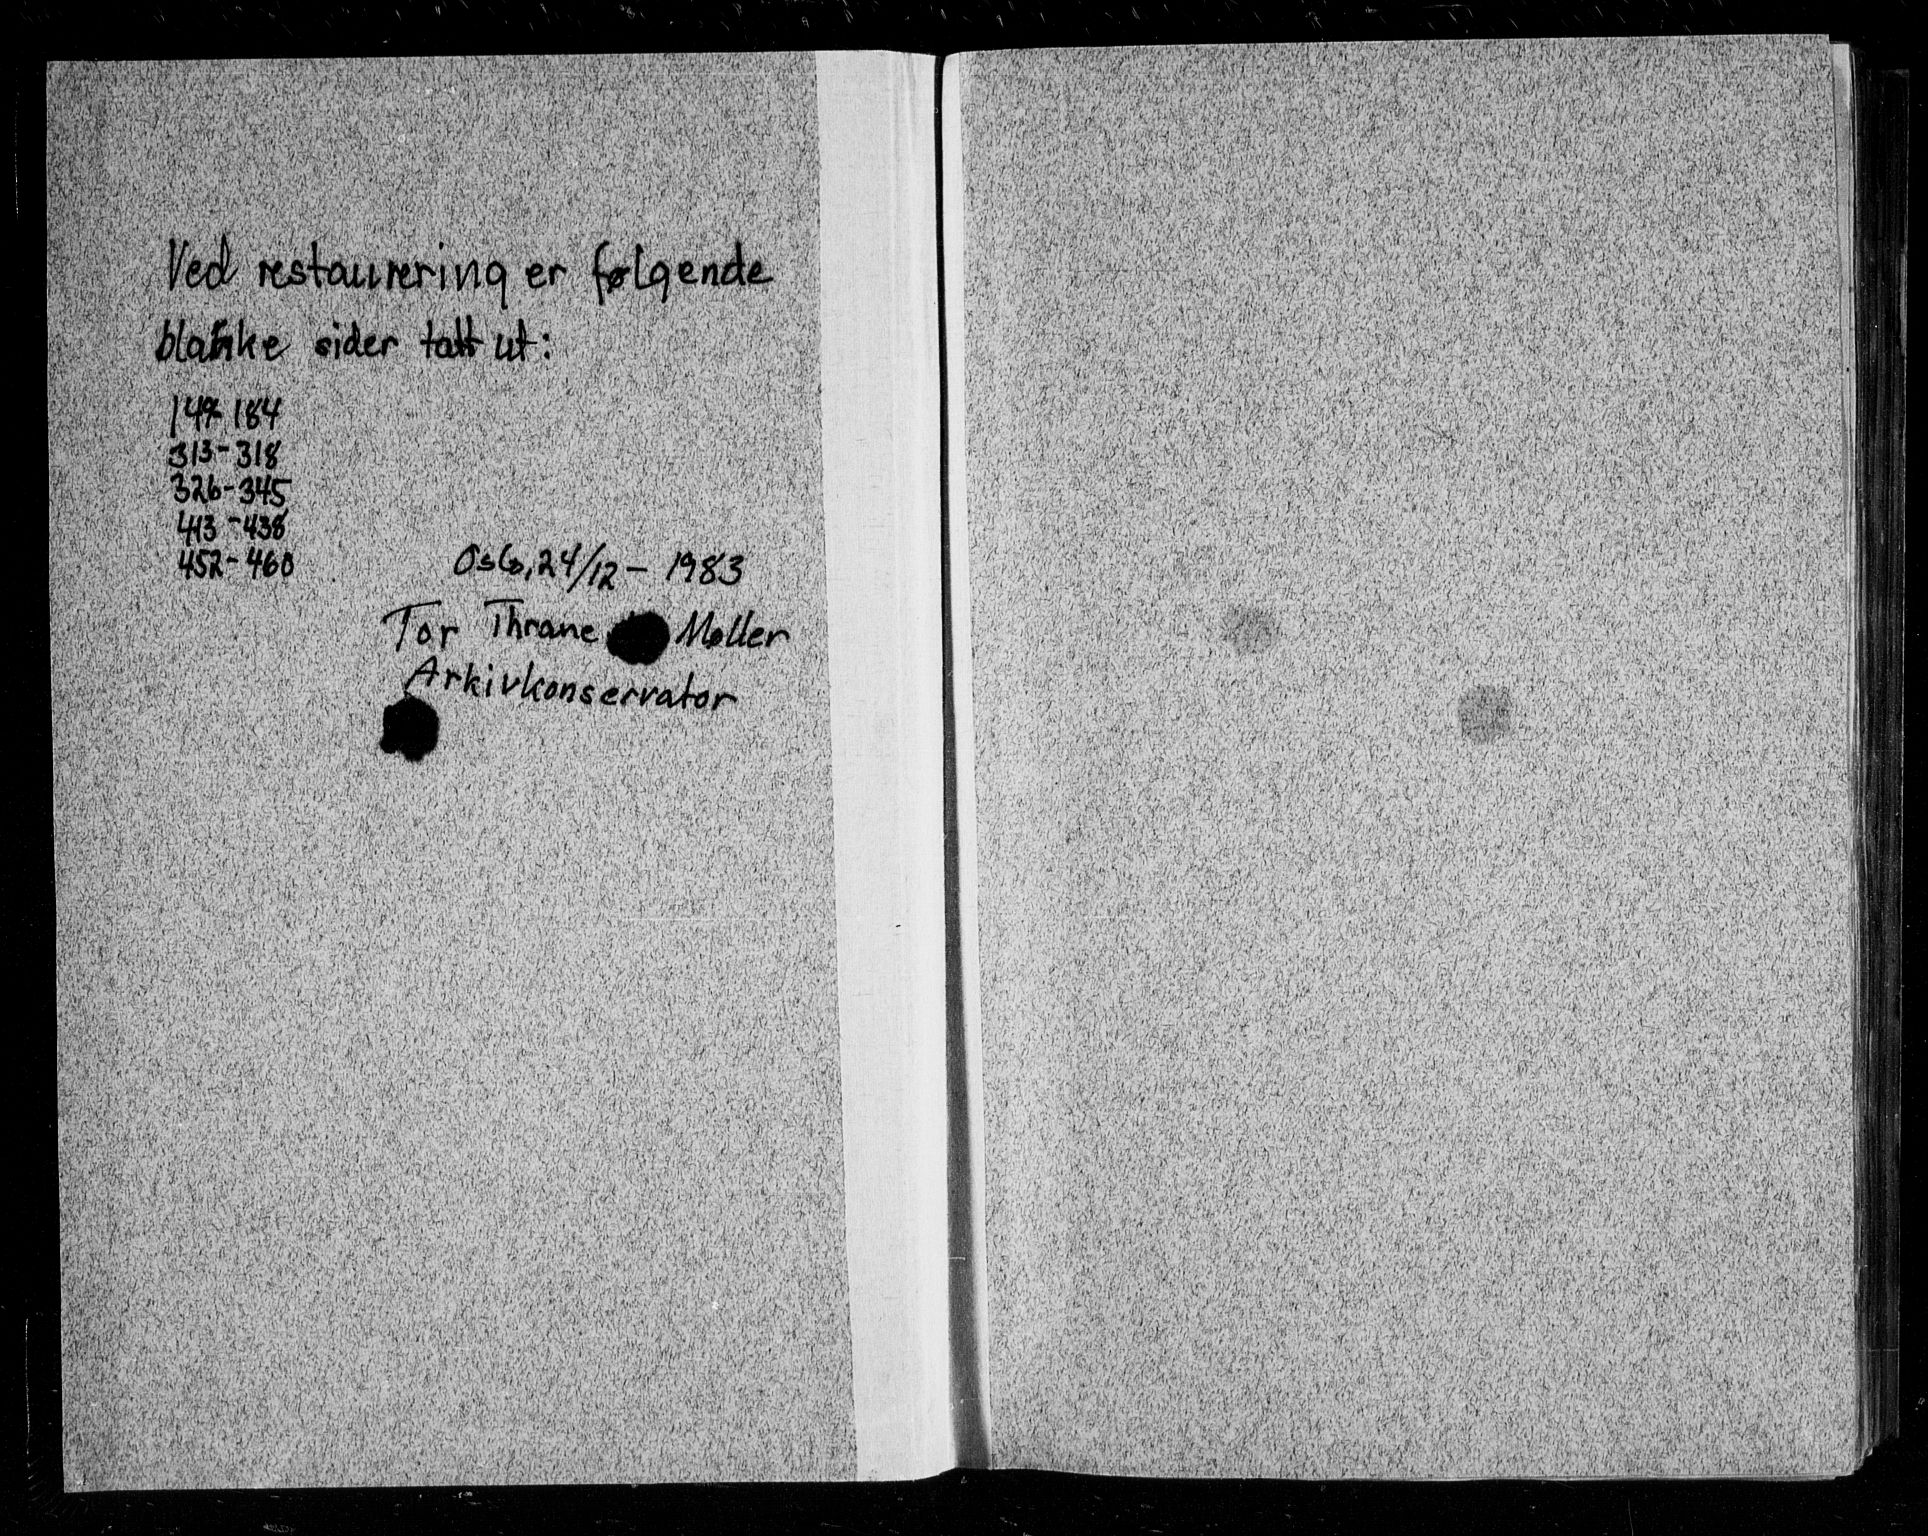 Ved restaurering er følgende
blanke sider tatt ut:
147-184
313-318
326-345
413-438
452-460
Oslo, 24/12 - 1983
Tor Thrane Møller
Arkivkonservator